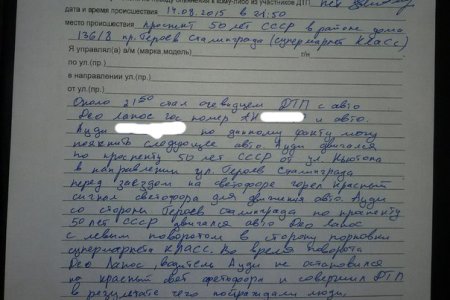 дата и время происшествия 14.08.2015 в 21:50
место происшествия проспект 50 лет СССР в районе дома
136/8 пр. Героев Сталинграда (супермаркет КЛАСС)
Я управлял(а) а/м (марка, модель) г/н
по ул.(пр.)
в направлении ул.(пр.)
от ул.(пр.)
Около 21 50 стал очевидцем ДТП с авто
Део Ланос гос номер АН и авто
Ауди по данному факту могу
пояснить следующее авто Ауди двигался
по проспекту 50 лет СССР от ул. Ньютона
в направлении ул. Героев Сталинграда
перед заездом на светофоре горел красный
сигнал светофора для движения авто Ауди
со стороны Героев Сталинграда по проспекту
50 лет СССР двигался авто Део Ланос
с левым поворотом в сторону парковки
супермаркета КЛАСС. Во время поворота
Део Ланос, водитель Ауди не остановился
на красный свет светофора и совершил ДТП
в результате чего пострадали люди.